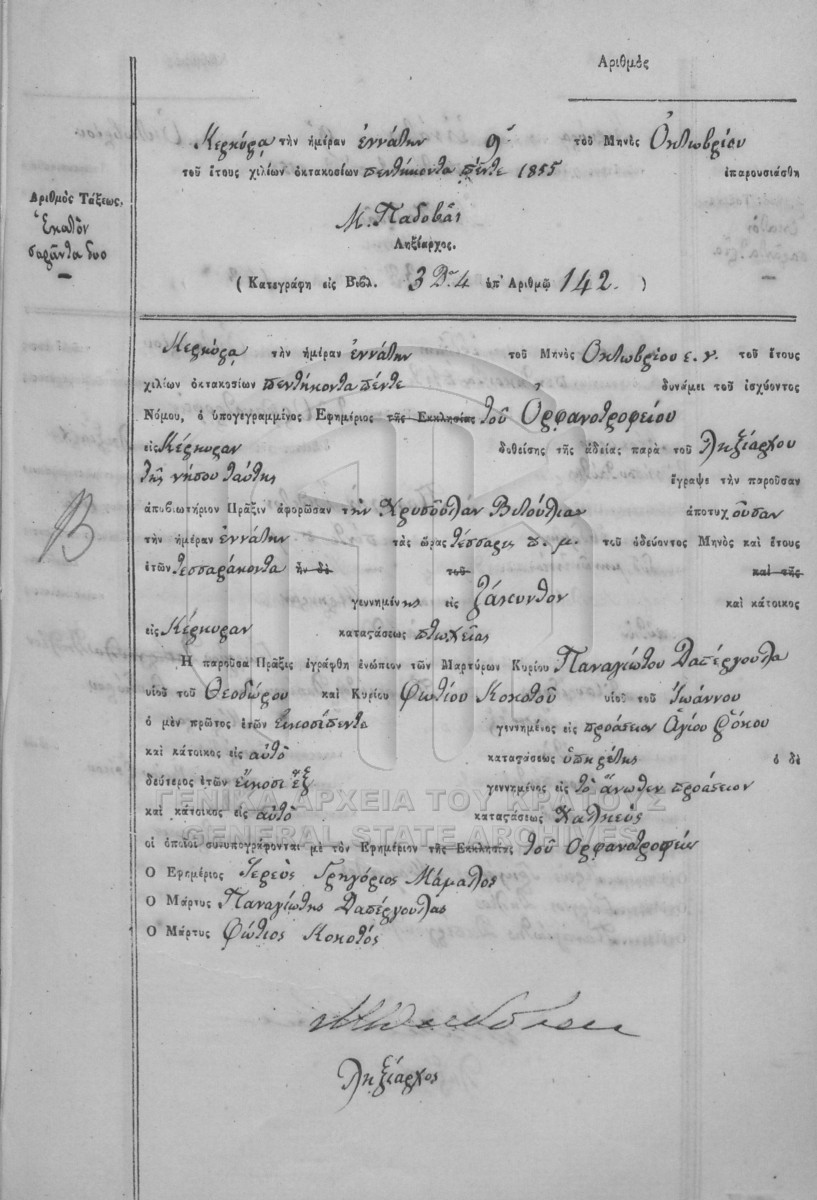 Αριθμός
Κερκύρᾳ τὴν ἡμέραν ἐννάτην 9 τοῦ Μηνὸς Ὀκτωβρίου
τοῦ ἔτους χιλίων ὀκτακοσίων πεντήκοντα πέντε 1855 ἐπαρουσιάσθη
Αριθμὸς Τάξεως.
Ἑκατὸν
σαράντα δυο
Μ. Παδοβᾶς
Ληξίαρχος.
( Κατεγράφη εἰς Βιβλ. 3 4 ὑπ' Αριθμῷ 142. )
Κερκύρᾳ τὴν ἡμέραν ἐννάτην τοῦ Μηνὸς Οκτωβρίου ε. ν. τοῦ ἔτους
χιλίων ὀκτακοσίων πεντήκοντα πέντε δυνάμει τοῦ ἰσχύοντος
Νόμου, ὁ ὑπογεγραμμένος Εφημέριος τῆς Εκκλησίας τοῦ Ὀρφανοτροφείου
εἰς Κέρκυραν δοθείσης τῆς ἀδείας παρὰ τοῦ Ληξιάρχου
τῆς νήσου ταύτης ἔγραψε τὴν παροῦσαν
ἀποβιωτήριον Πρᾶξιν ἀφορῶσαν τὴν Χρυσοῦλαν ἀποτυχοῦσαν
Β
τὴν ἡμέραν ἐννάτην τὰς ὥρας τέσσαρες π. μ. τοῦ ὁδεύοντος Μηνὸς καὶ ἔτους
ἐτῶν τεσσαράκοντα ἣν δὲ τοῦ καὶ τῆς
γεννημένης εἰς Ζάκυνθον καὶ κάτοικος
εἰς Κέρκυραν καταςάσεως πτωχείας
Η παροῦσα Πρᾶξις ἐγράφθη ἐνώπιον τῶν Μαρτύρων Κυρίου Παναγιώτου Δαπέργουλα
υἱοῦ τοῦ Θεοδώρου καὶ Κυρίου Φωτίου Κοκοτοῦ υἱοῦ τοῦ Ἰωάννου
ὁ μὲν πρῶτος ἐτῶν εἰκοσίπεντε γεννημένος εἰς προάστειον Ἁγίου Ρόκου
καὶ κάτοικος εἰς αὐτὸ καταςάσεως ὑπηρέτης ὁ δὲ
δεύτερος ἐτῶν εἴκοσι ἓξ γεννημένος εἰς τὸ ἄνωθεν προάστειον
καὶ κάτοικος εἰς αὐτὸ καταςάσεως Χαλκεύς
ΓΕΝΙΚΑ ΑΡΧΕΙΑ ΤΟΥ ΚΡΑΤΟΥΣ
GENERAL STATE ARCHIVES
οἱ ὁποῖοι συνυπογράφονται μὲ τὸν Εφημέριον τῆς Εκκλησίας τοῦ Ορφανοτροφείου
Ο Εφημέριος Ἱερεὺς Γρηγόριος Μάμαλος
Ο Μάρτυς Παναγιώτης Δαπέργουλας
Ο Μάρτυς Φώτιος Κοκοτός
Ληξίαρχος